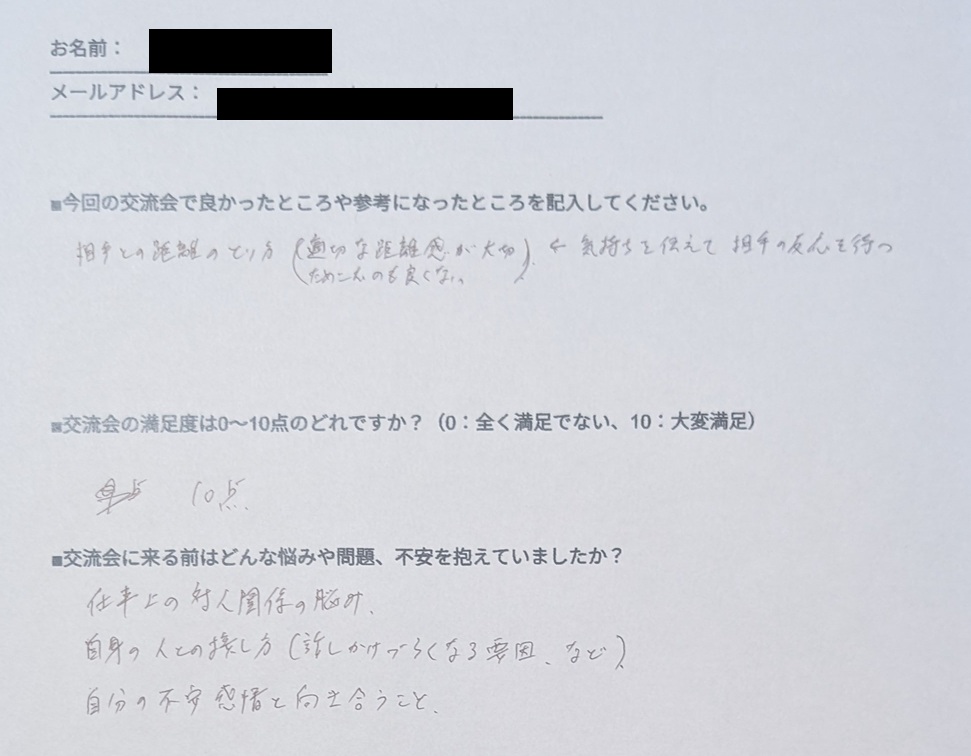 お名前：
メールアドレス：
■今回の交流会で良かったところや参考になったところを記入してください。
相手との距離のとり方（適切な距離感が大切）← 気持ちを伝えて 相手の反応を待つ
ためこむのも良くない。
■交流会の満足度は0〜10点のどれですか？（0：全く満足でない、10：大変満足）
10点.
■交流会に来る前はどんな悩みや問題、不安を抱えていましたか？
仕事上の対人関係の脳み.
自身の人との接し方（話しかけづらくなる要因、など）
自分の不安感情と向き合うこと.